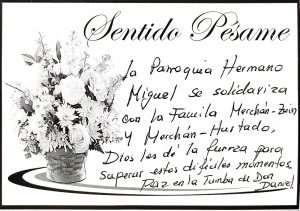 Sentido Pésame
La Parroquia Hermano
Miguel se solidariza
con la Familia Merchán-
y Merchán-Hurtado,
Dios les dé la fuerza para
superar estos difíciles momentos
Paz en la Tumba de Don
Daniel